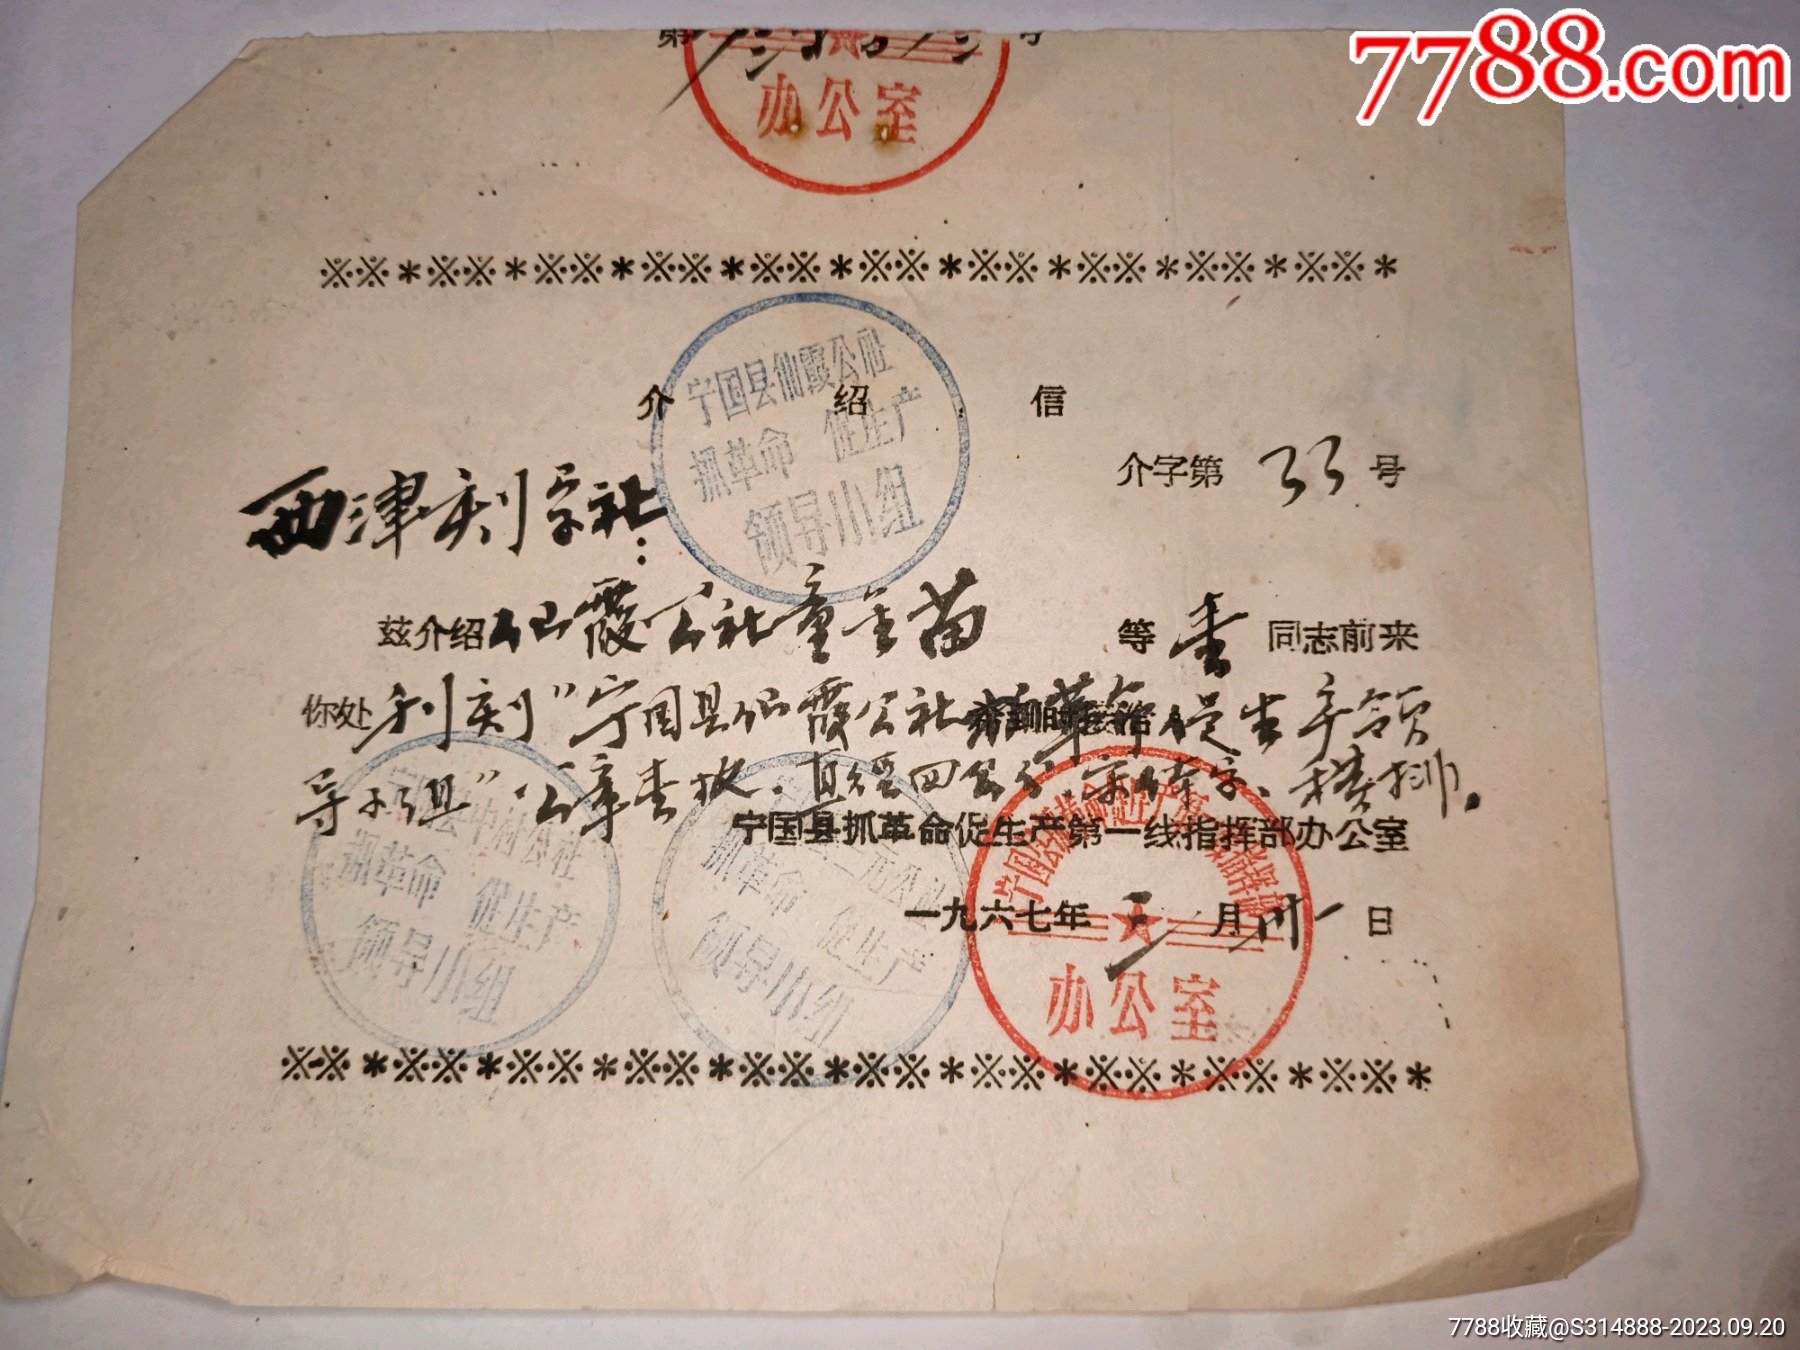 7788.com
第 号
办公室
※※*※※*※※*※※*※※*※※*※※*※※*※※*※※*
宁国县仙霞公社
抓革命 促生产
领导小组
介 绍 信
介字第 33 号
西津刻字社：
兹介绍仙霞公社童金苗 等壹同志前来
你处刊刻"宁国县仙霞公社抓革命促生产领
导小组"公章壹枚，直径四公分，宋体字、横排。
宁国县抓革命促生产第一线指挥部办公室
一九六七年三月卅一日
公社
抓革命 促生产
领导小组
公社
抓革命 促生产
领导小组
宁国县抓革命促生产第一线指挥部
办公室
※※*※※*※※*※※*※※*※※*※※*※※*※※*※※*
7788收藏@S314888-2023.09.20